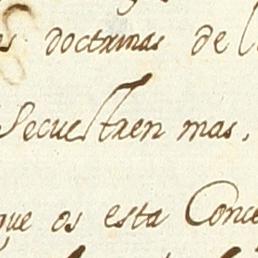 es doctrinas de l
Secuestren mas,
que os esta Conce